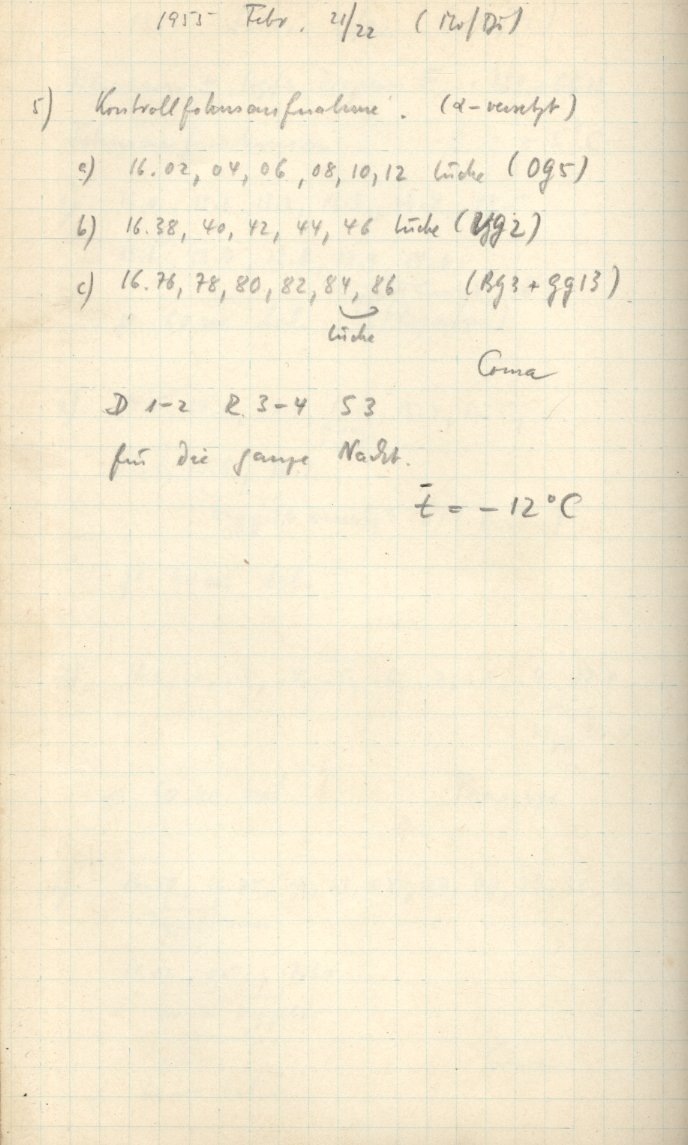 1955 Febr. 21/22 (Mo/Di)
5) Kontrollfokusaufnahme. (α-versetzt)
a) 16.02, 04, 06, 08, 10, 12 Lücke (Og5)
b) 16.38, 40, 42, 44, 46 Lücke (gg2)
c) 16.76, 78, 80, 82, 84, 86 (Bg3 + gg13)
Lücke
Coma
D 1-2 R 3-4 S 3
für die ganze Nacht.
t̄ = - 12°C